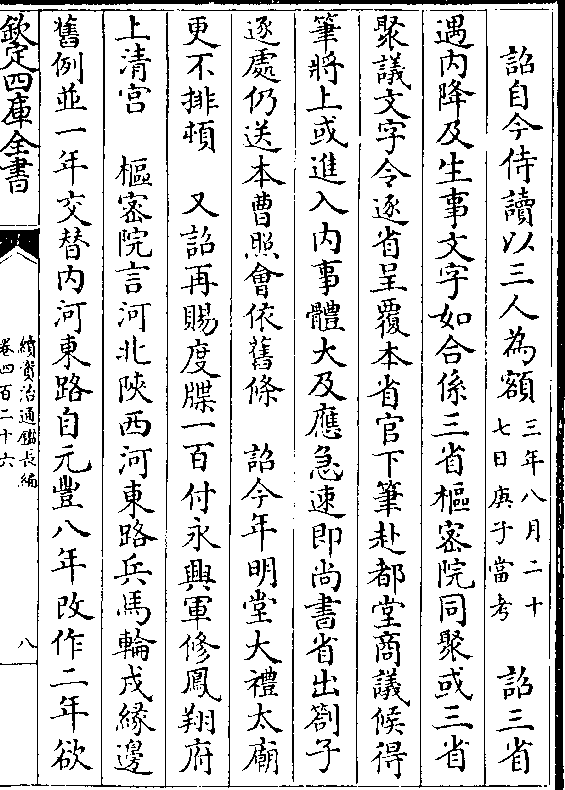 詔自今侍讀以三人為額三年八月二十七日庚子當考 詔三省
遇内降及生事文字如合係三省樞密院同聚或三省
聚議文字令逐省呈覆本省官下筆赴都堂商議候得
筆將上或進入内事體大及應急速即尚書省出劄子
逐處仍送本曹照會依舊條 詔今年明堂大禮太廟
更不排頓 又詔再賜度牒一百付永興軍修鳳翔府
上清宫 樞密院言河北陜西河東路兵馬輪戍緣邊
舊例並一年交替内河東路自元豐八年改作二年欲
欽定四庫全書
續資治通鑑長編
卷四百二十六
八